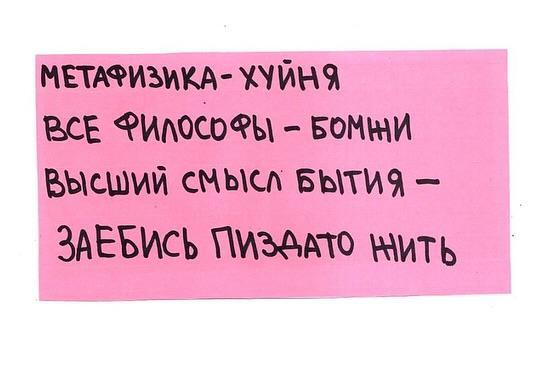 МЕТАФИЗИКА - ХУЙНЯ
ВСЕ ФИЛОСОФЫ - БОМЖИ
ВЫСШИЙ СМЫСЛ БЫТИЯ -
ЗАЕБИСЬ ПИЗДАТО ЖИТЬ